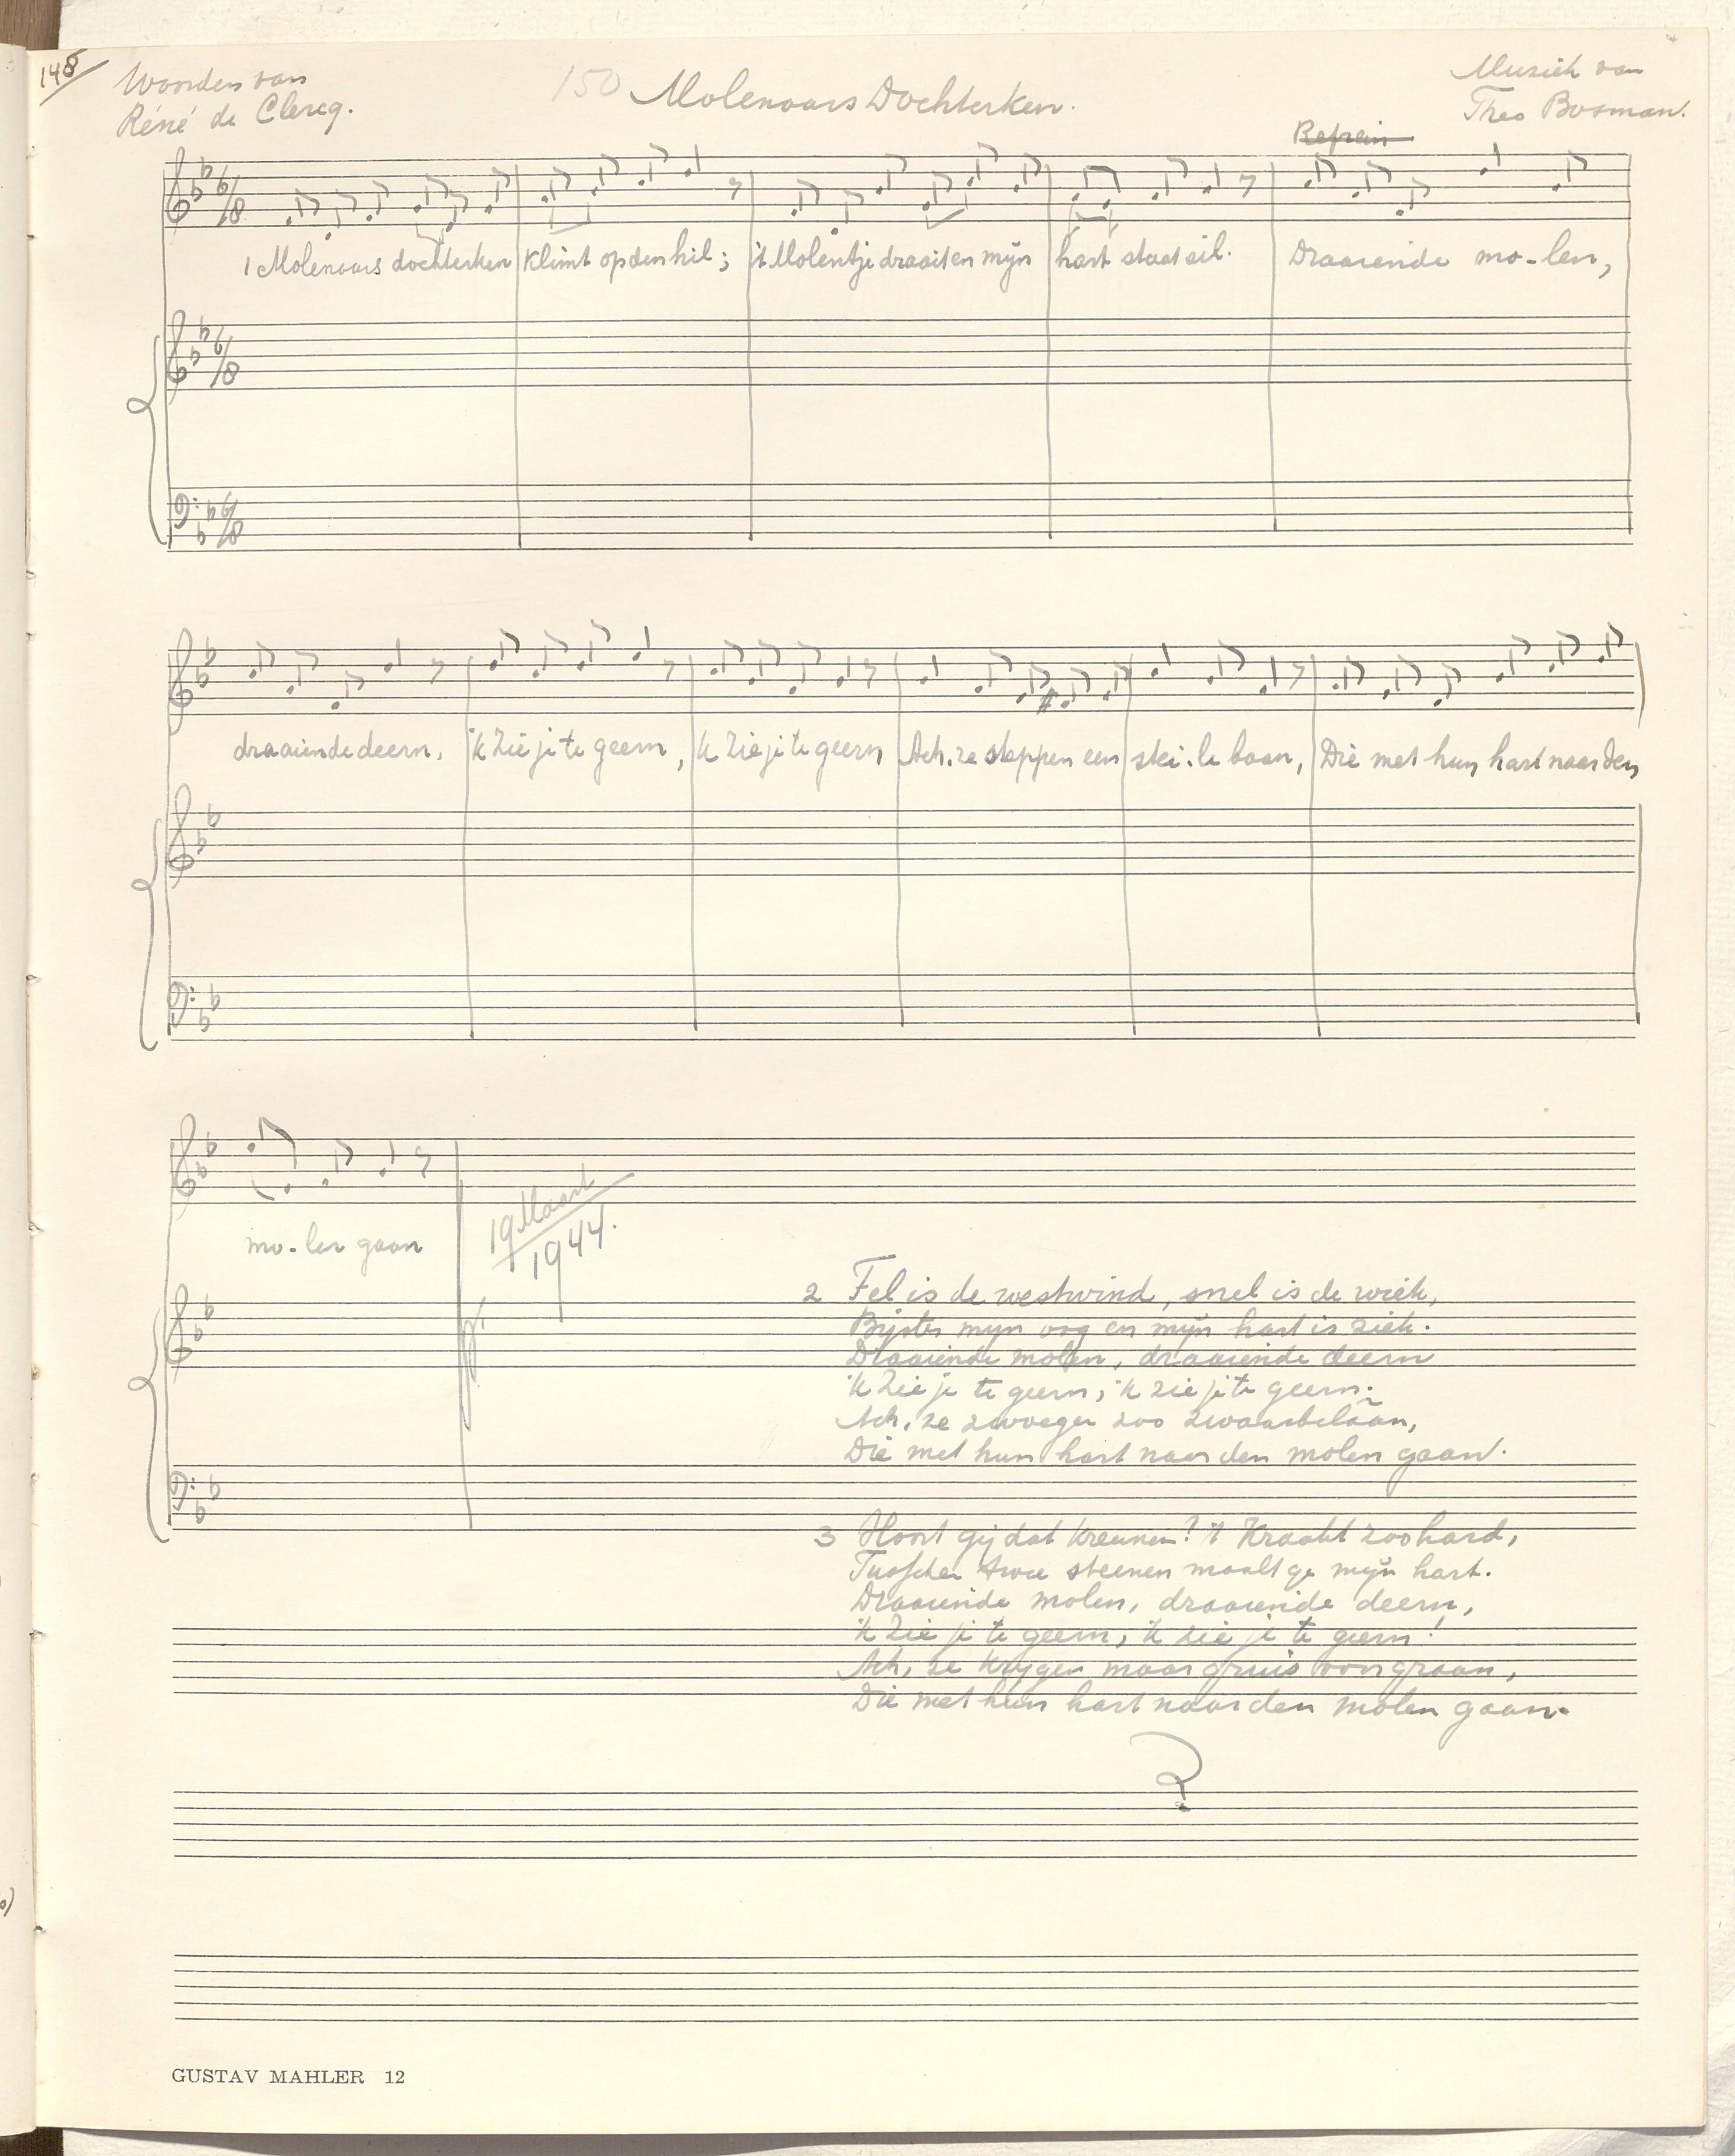 148
Woorden van
Réné de Clercq.
150 Molenaars Dochterken.
Muziek van
Theo Bosman.
Refrein
6/8
1 Molenaars dochterken klimt op den hil; 't Molentje draait en mijn hart staat stil. Draaiende mo-len,
6/8
6/8
draaiende deern, 'k Zie je te geern, 'k Zie je te geern Ach, ze stappen een stei-le baan, Die met hun hart naar den
mo-len gaan
19 Maart
1944.
2 Fel is de westwind, snel is de wiek,
Bijster mijn oog en mijn hart is ziek.
Draaiende molen, draaiende deern
'k Zie je te geern, 'k zie je te geern.
Ach, ze zwoegen zoo zwaarbelaân,
Die met hun hart naar den molen gaan.
3 Hoort gij dat kreunen? 't Kraakt zoo hard,
Tusschen twee steenen maalt ge mijn hart.
Draaiende molen, draaiende deern,
'k Zie je te geern, 'k zie je te geern!
Ach, ze krijgen maar gruis voor graan,
Die met hun hart naar den molen gaan.
GUSTAV MAHLER 12